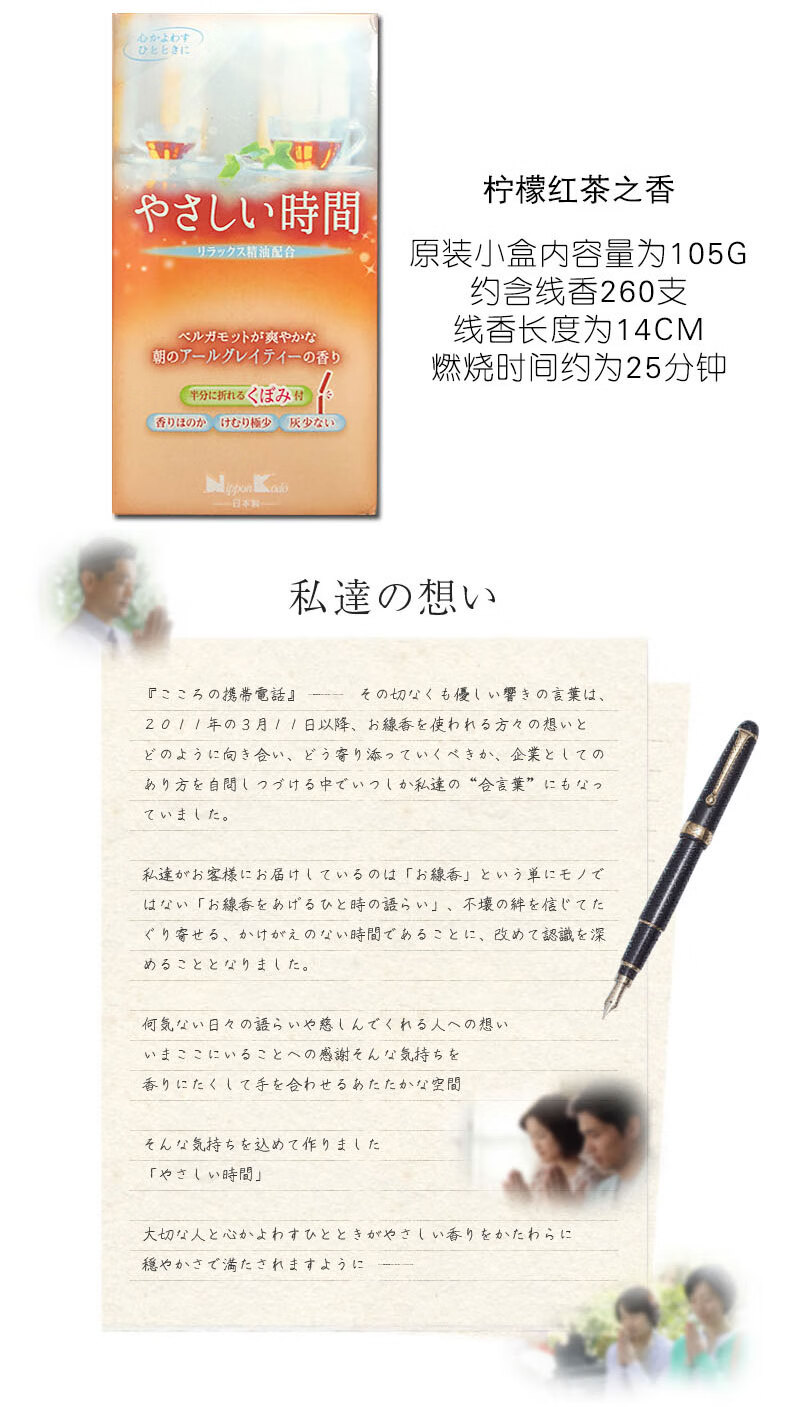 心かよわす
ひとときに
やさしい時間
リラックス精油配合
ベルガモットが爽やかな
朝のアールグレイティーの香り
半分に折れるくぼみ付
香りほのか けむり極少 灰少ない
Nippon Kodo
日本製
柠檬红茶之香
原装小盒内容量为105G
约含线香260支
线香长度为14CM
燃烧时间约为25分钟
私達の想い
『こころの携帯電話』 —— その切なくも優しい響きの言葉は、
２０１１年の３月１１日以降、お線香を使われる方々の想いと
どのように向き合い、どう寄り添っていくべきか、企業としての
あり方を自問しつづける中でいつしか私達の“合言葉”にもなっ
ていました。
私達がお客様にお届けしているのは「お線香」という単にモノで
はない「お線香をあげるひと時の語らい」、不壊の絆を信じてた
ぐり寄せる、かけがえのない時間であることに、改めて認識を深
めることとなりました。
何気ない日々の語らいや慈しんでくれる人への想い
いまここにいることへの感謝そんな気持ちを
香りにたくして手を合わせるあたたかな空間
そんな気持ちを込めて作りました
「やさしい時間」
大切な人と心かよわすひとときがやさしい香りをかたわらに
穏やかさで満たされますように ——